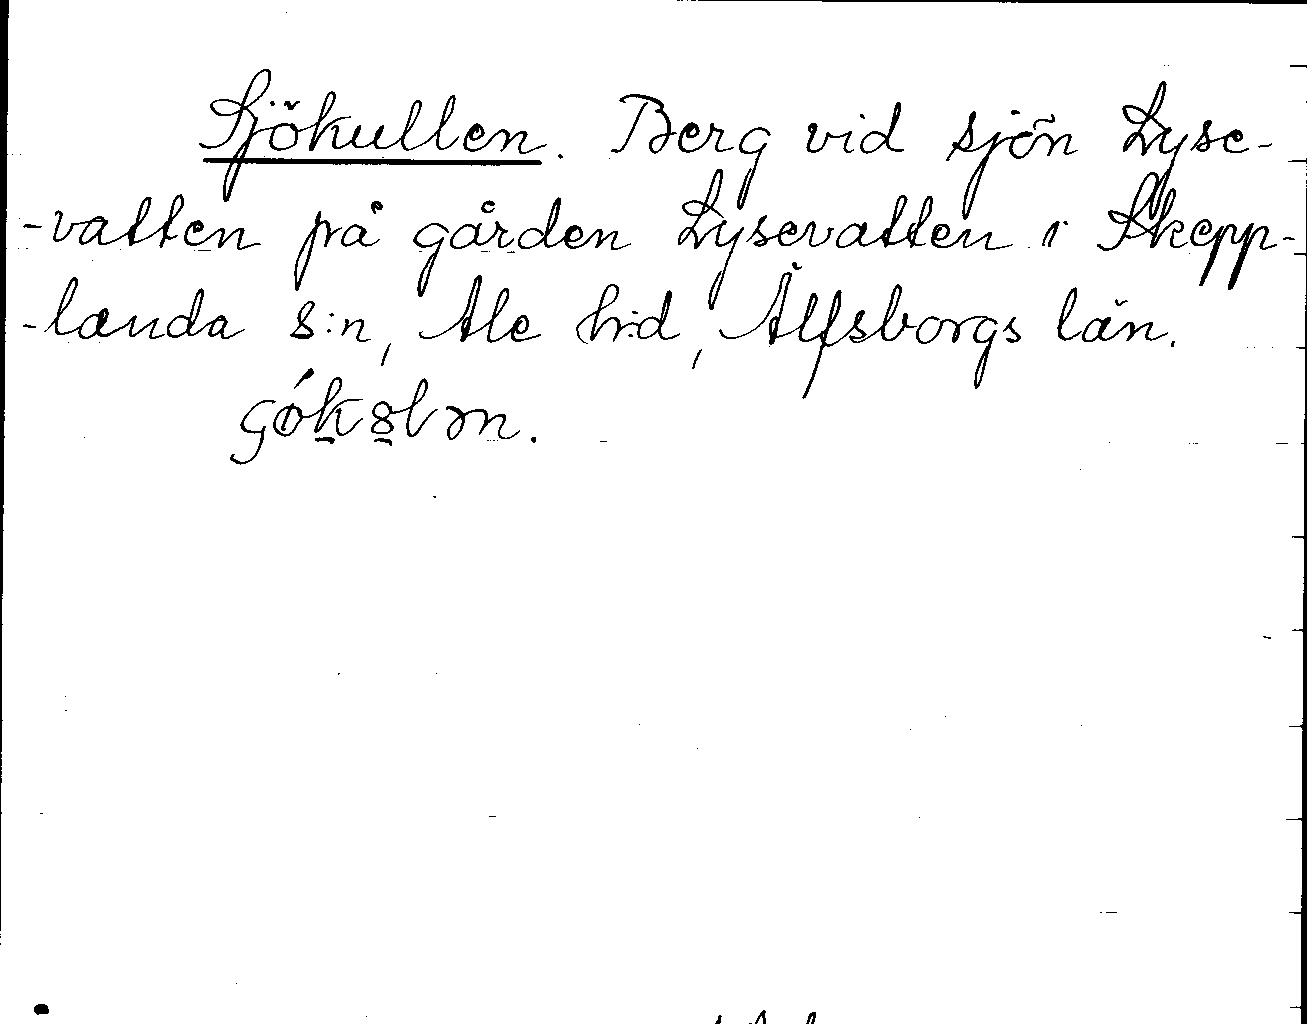 Sjökullen. Berg vid sjön Lyse-
-vatten på gården Lysevatten i Skepp-
-landa s:n, Ale h:d, Älfsborgs län.